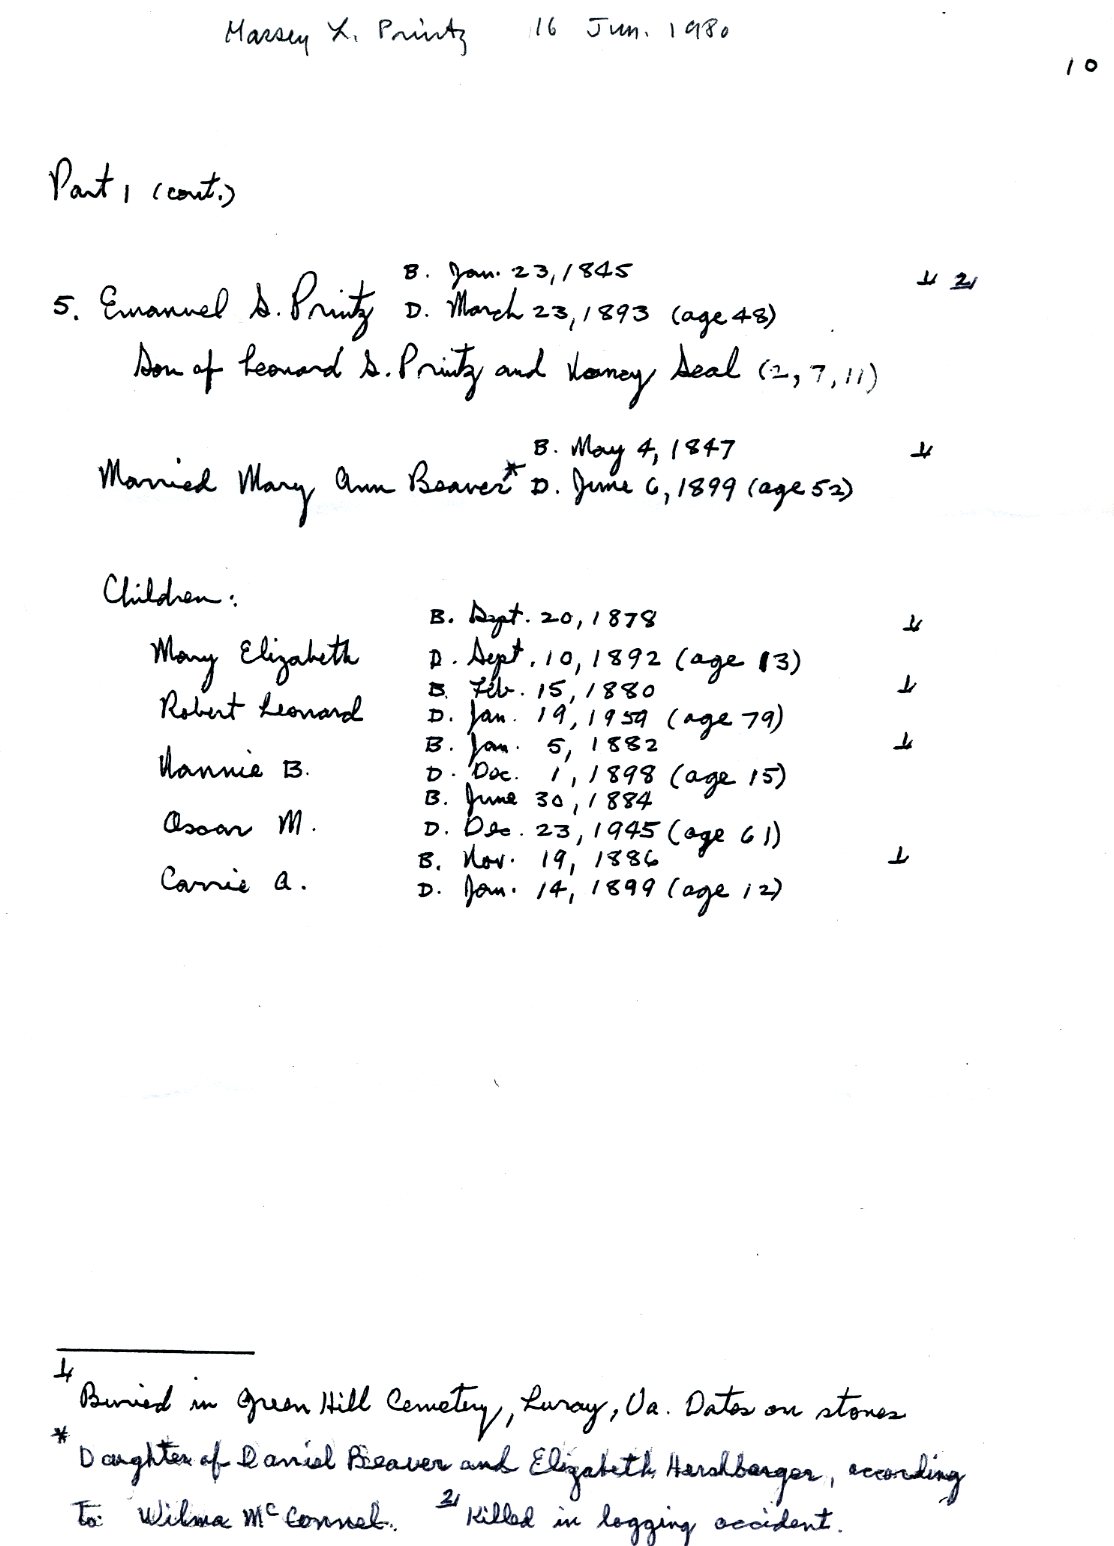 Massey L. Printz 16 Jun. 1980
10
Part 1 (cont.)
B. Jan. 23, 1845 1/ 2/
5. Emanuel S. Printz D. March 23, 1893 (age 48)
Son of Leonard S. Printz and Nancy Seal (2, 7, 11)
B. May 4, 1847 1/
Married Mary Ann Beaver* D. June 6, 1899 (age 52)
Children:
B. Sept. 20, 1878 1/
Mary Elizabeth D. Sept. 10, 1892 (age 13)
B. Feb. 15, 1880 1/
Robert Leonard D. Jan. 19, 1959 (age 79)
B. Jan. 5, 1882 1/
Nannie B. D. Dec. 1, 1898 (age 15)
B. June 30, 1884
Oscar M. D. Dec. 23, 1945 (age 61)
B. Nov. 19, 1886 1/
Carrie A. D. Jan. 14, 1899 (age 12)
1/ Buried in Green Hill Cemetery, Luray, Va. Dates on stones
* Daughter of Daniel Beaver and Elizabeth Hershberger, according
to: Wilma McConnel. 2/ Killed in logging accident.